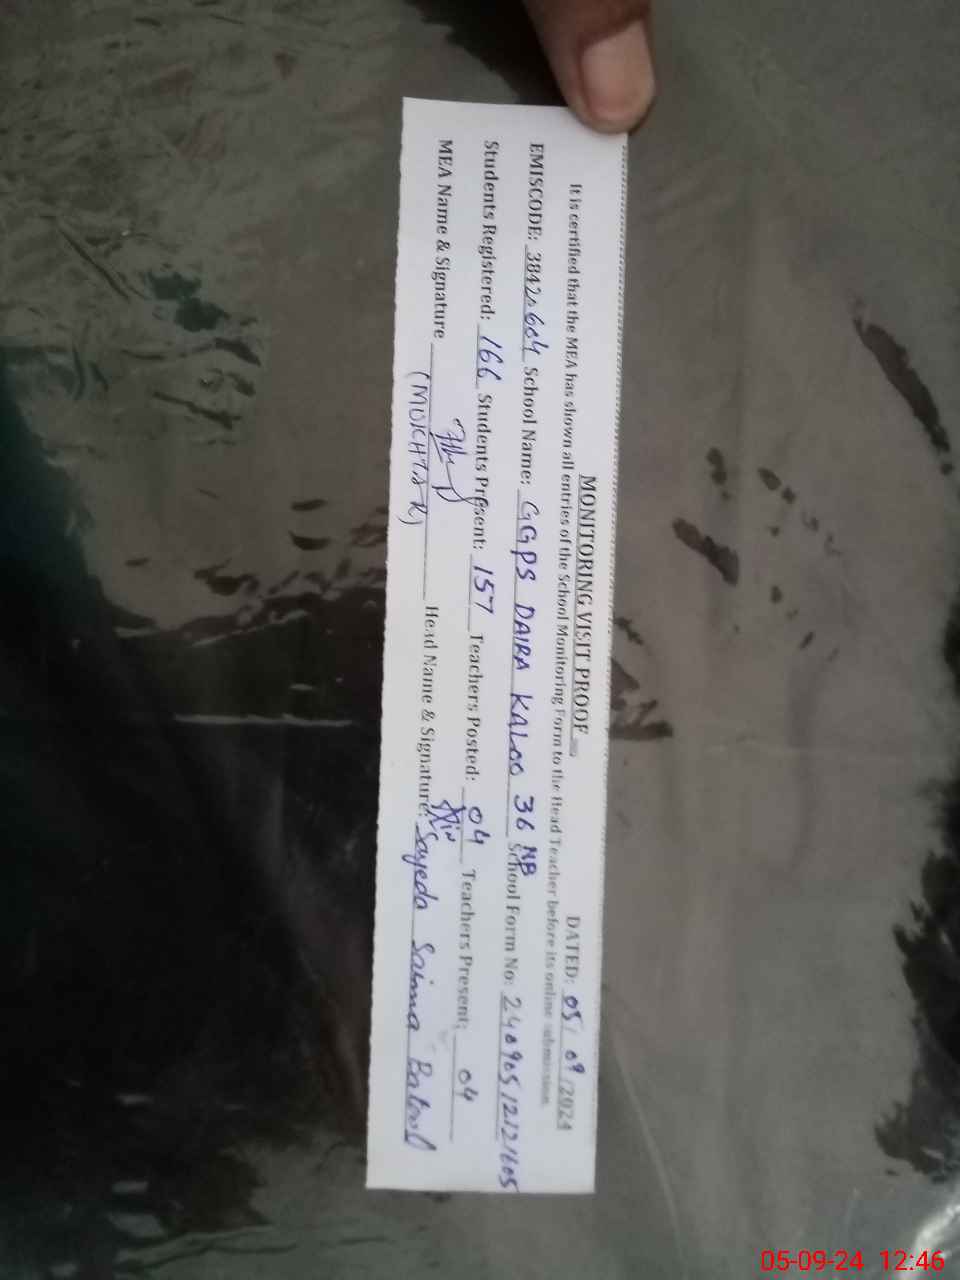 MONITORING VISIT PROOF
DATED: 05/09/2024
It is certified that the MEA has shown all entries of the School Monitoring Form to the Head Teacher before its online submission.
EMISCODE: 38420604 School Name: GGPS DAIRA KALOO 36 NB School Form No: 24090512121605
Students Registered: 166 Students Present: 157 Teachers Posted: 04 Teachers Present: 04
MEA Name & Signature (MUKHTAR) Head Name & Signature: Sayeda Saima Batool
05-09-24 12:46